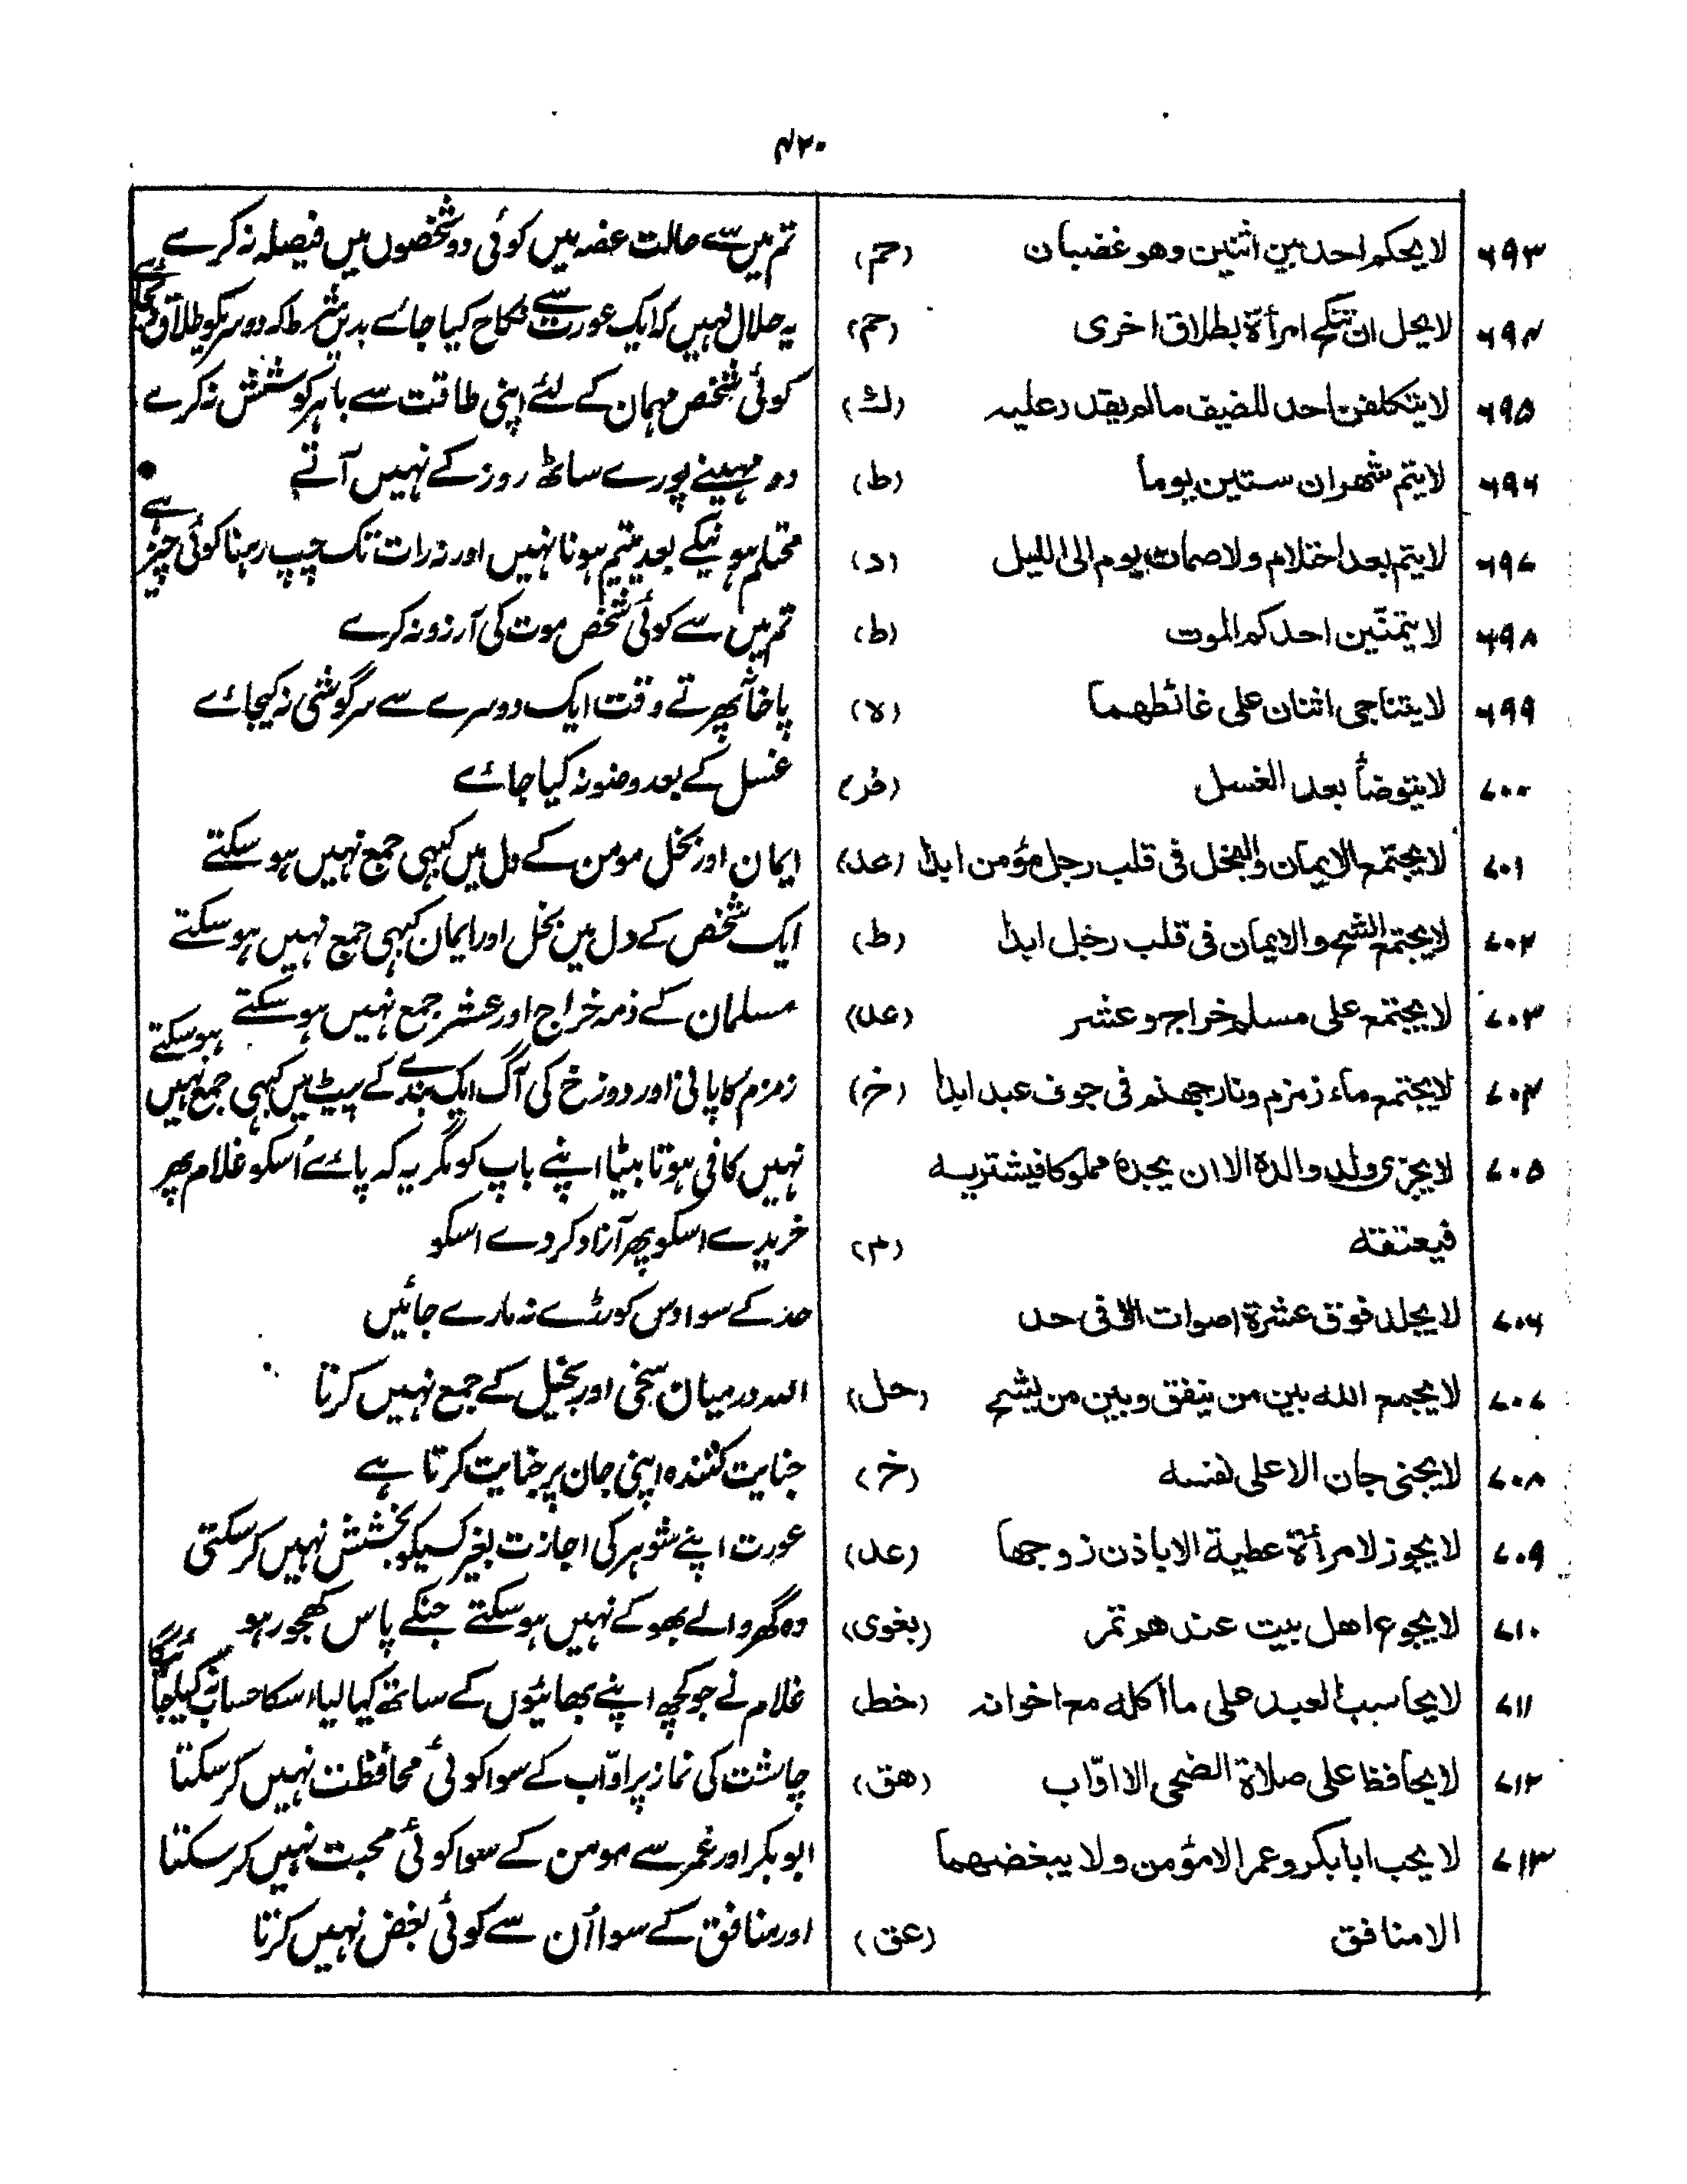 ۴۲۰
۶۹۳ لا يحكم احد بين اثنين وهو غضبان (حم) تم میں سے حالت غصہ میں کوئی دو شخصوں میں فیصلہ نہ کرے
۶۹۴ لا يحل ان تنكح امرأة بطلاق اخرى (حم) یہ حلال نہیں کہ ایک عورت سے نکاح کیا جائے بدیں شرط کہ دوسریکو طلاق دیجائے
۶۹۵ لا يتكلفن احد للضيف مالم يقدر عليه (ك) کوئی شخص مہمان کے لئے اپنی طاقت سے باہر کوشش نہ کرے
۶۹۶ لا يتم شهران ستين يوما (ط) دو مہینے پورے ساٹھ روز کے نہیں آتے
۶۹۷ لا يتم بعد احتلام ولا صمات يوم الى الليل (د) محتلم ہونیکے بعد یتیم ہونا نہیں اور نہ رات تک چپ رہنا کوئی چیز ہے
۶۹۸ لا يتمنّين احدكم الموت (ط) تم میں سے کوئی شخص موت کی آرزو نہ کرے
۶۹۹ لا يتناجى اثنان على غائطهما (ه) پاخانہ پھرتے وقت ایک دوسرے سے سرگوشی نہ کیجائے
۷۰۰ لا يتوضأ بعد الغسل (فر) غسل کے بعد وضو نہ کیا جائے
۷۰۱ لا يجتمع الايمان والبخل فى قلب رجل مؤمن ابدا (عد) ایمان اور بخل مومن کے دل میں کبھی جمع نہیں ہو سکتے
۷۰۲ لا يجتمع الشح والايمان فى قلب رجل ابدا (ط) ایک شخص کے دل میں بخل اور ایمان کبھی جمع نہیں ہو سکتے
۷۰۳ لا يجتمع على مسلم خراج وعشر (عد) مسلمان کے ذمہ خراج اور عشر جمع نہیں ہو سکتے
۷۰۴ لا يجتمع ماء زمزم ونار جهنم فى جوف عبد ابدا (خ) زمزم کا پانی اور دوزخ کی آگ ایک بندے کے پیٹ میں کبھی جمع نہیں ہو سکتے
۷۰۵ لا يجزى ولد والده الا ان يجده مملوكا فيشتريه نہیں کافی ہوتا بیٹا اپنے باپ کو مگر یہ کہ پائے اُسکو غلام پھر
فيعتقه (م) خریدے اسکو پھر آزاد کردے اسکو
۷۰۶ لا يجلد فوق عشرة اصوات الا فى حد حد کے سوا دس کورڑے نہ مارے جائیں
۷۰۷ لا يجمع الله بين من ينفق وبين من يشح (حل) اللہ درمیان سخی اور بخیل کے جمع نہیں کرتا
۷۰۸ لا يجنى جان الا على نفسه (خ) جنایت کنندہ اپنی جان پر جنایت کرتا ہے
۷۰۹ لا يجوز لامرأة عطية الا باذن زوجها (عد) عورت اپنے شوہر کی اجازت بغیر کسیکو بخشش نہیں کر سکتی
۷۱۰ لا يجوع اهل بيت عندهم تمر (بغوى) وہ گھر والے بھوکے نہیں ہو سکتے جنکے پاس کھجور ہو
۷۱۱ لا يحاسب العبد على ما اكله مع اخوانه (خط) غلام نے جو کچھ اپنے بھائیوں کے ساتھ کھالیا اسکا حساب نہ کیا جائیگا
۷۱۲ لا يحافظ على صلاة الضحى الا اوّاب (هق) چاشت کی نماز پر اوّاب کے سوا کوئی محافظت نہیں کر سکتا
۷۱۳ لا يحب ابا بكر وعمر الا مؤمن ولا يبغضهما ابوبکر اور عمر سے مومن کے سوا کوئی محبت نہیں کر سکتا
الا منافق (عق) اور منافق کے سوا اُن سے کوئی بغض نہیں کرتا